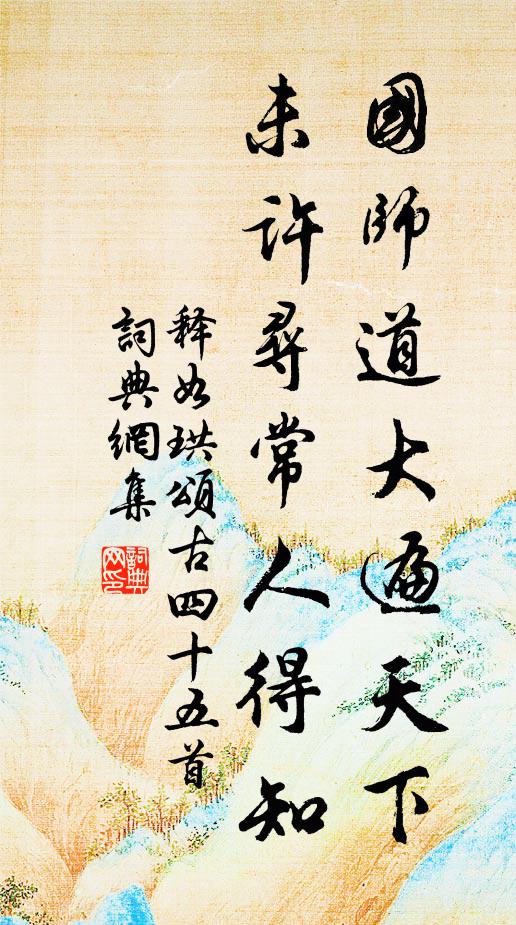 國師道大遍天下
未許尋常人得知
释如珙頌古四十五首
詞典網集
詞典
网印